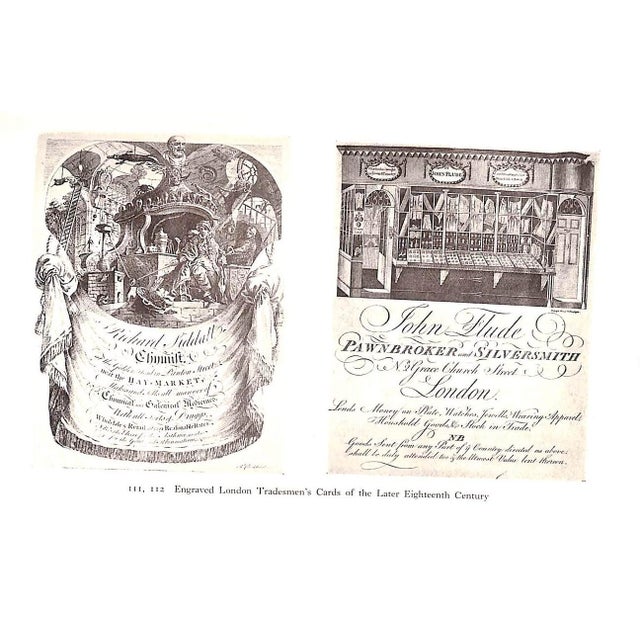 Richard Siddall
Chymist,
At the Golden Head in Panton Street
near the HAY-MARKET,
Makes and sells all manner of
Chymical and Galenical Medicines,
With all sorts of Druggs,
Wholesale & Retail at
JOHN FLUDE
John Flude
PAWNBROKER and SILVERSMITH
N.2 Grace Church Street
London.
Lends Money on Plate, Watches, Jewells, Wearing Apparel,
Household Goods, & Stock in Trade.
NB
Goods Sent from any Part of ye Country directed as above;
shall be duly attended too & the Utmost Value lent thereon.
111, 112 Engraved London Tradesmen's Cards of the Later Eighteenth Century